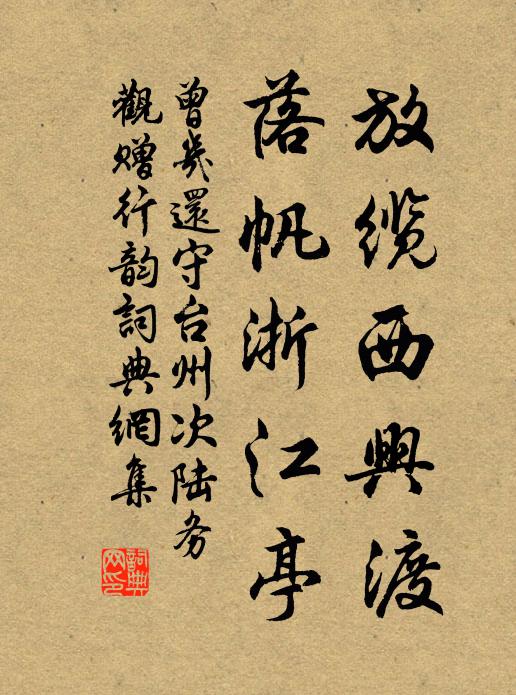 放缆西興渡
落帆浙江亭
曾幾還守台州次陆务
觀贈行韵詞典網集
詞典网印